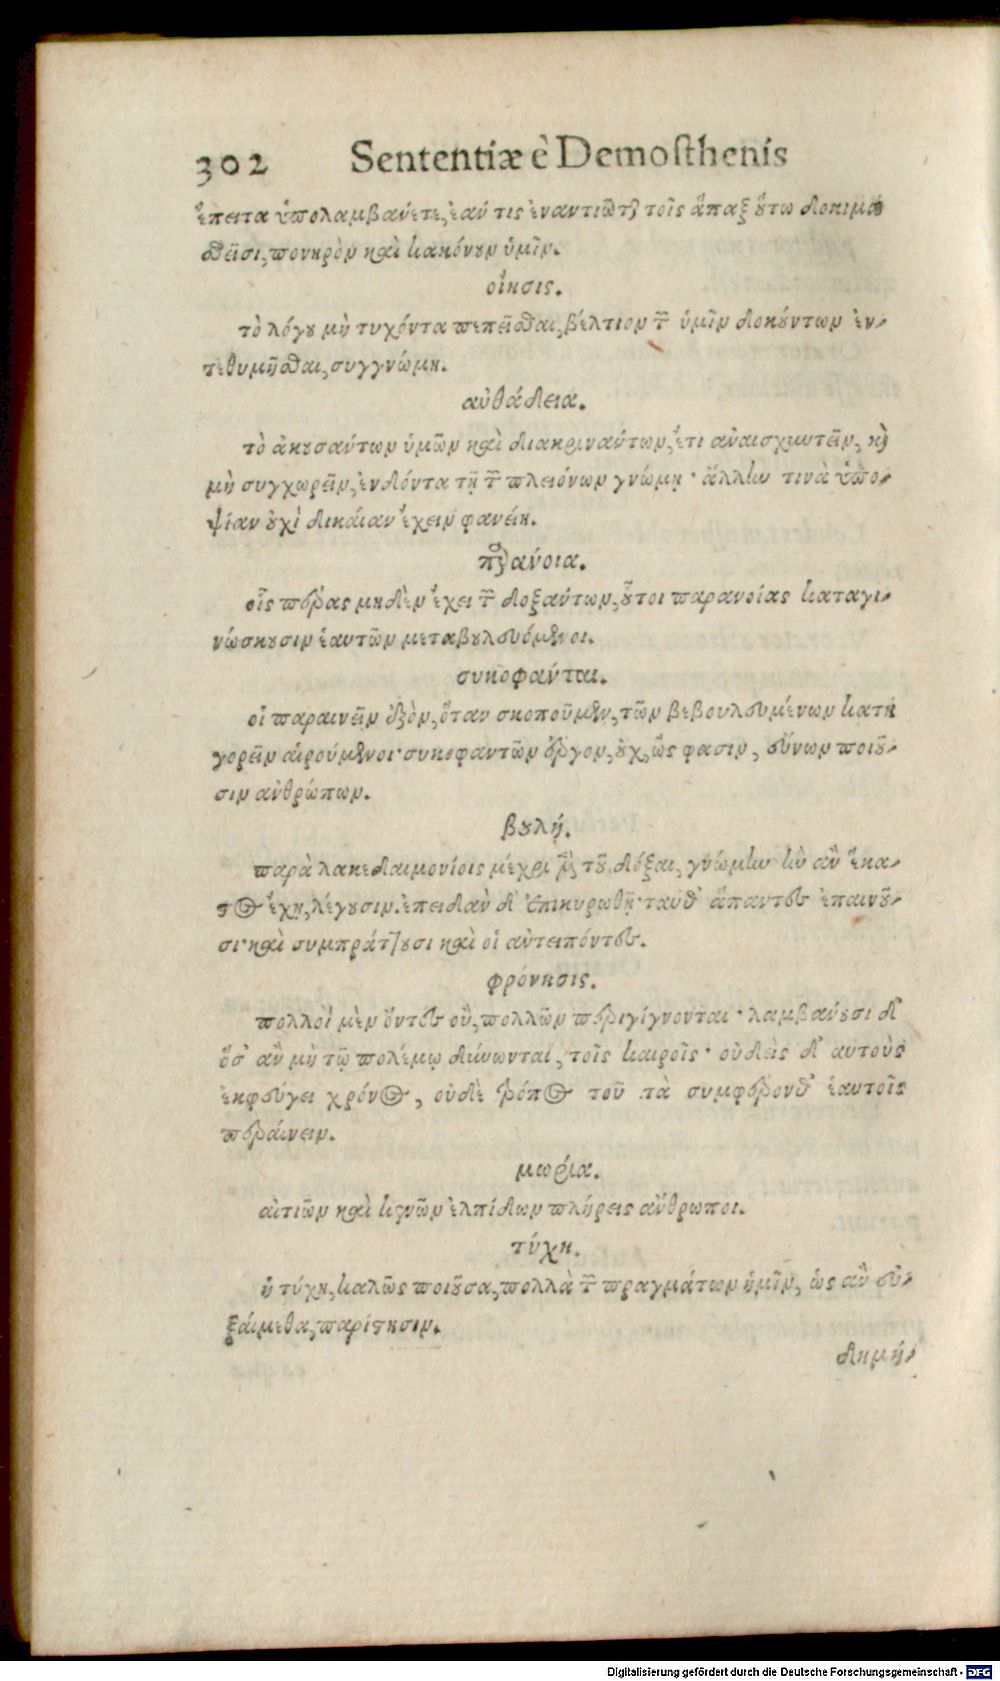 302 Sententiæ è Demoſthenis
ἔπειτα ὑπολαμβάνετε, ἐάν τις ἐναντιῶται τοῖς ἅπαξ οὕτω δοκιμα
σθεῖσι, πονηρὸν καὶ κακόνουν ὑμῖν.
οἴησις.
τὸ λόγου μὴ τυχόντα πεπεῖσθαι, βέλτιον τῶν ὑμῖν δοκούντων ἐν-
τεθυμῆσθαι, συγγνώμη.
αὐθάδεια.
τὸ ἀκουσάντων ὑμῶν καὶ διακρινάντων, ἔτι ἀναισχυντεῖν, καὶ
μὴ συγχωρεῖν, ἐνδόντα τῇ τῶν πλειόνων γνώμῃ· ἄλλην τινὰ ὑπο-
ψίαν οὐχὶ δικαίαν ἔχειν φανείη.
παράνοια.
οἷς πέρας μηδὲν ἔχει τῶν δοξάντων, οὗτοι παρανοίας καταγι-
νώσκουσιν ἑαυτῶν μεταβουλευόμενοι.
συκοφάνται.
οἱ παραινεῖν ἐξὸν, ὅταν σκοποῦμεν, τῶν βεβουλευμένων κατη
γορεῖν αἱρούμενοι· συκοφαντῶν ἔργον, οὐχ, ὥς φασιν, εὔνων ποιοῦ-
σιν ἀνθρώπων.
βουλή.
παρὰ λακεδαιμονίοις μέχρι μὲν τοῦ δόξαι, γνώμην ἣν ἂν ἕκα-
στος ἔχῃ, λέγουσιν. ἐπειδὰν δ' ἐπικυρωθῇ· ταῦθ' ἅπαντες ἐπαινοῦ-
σι· καὶ συμπράττουσι καὶ οἱ ἀντειπόντες.
φρόνησις.
πολλοὶ μὲν ὄντες οὒ, πολλῶν περιγίγνονται· λαμβάνουσι δ'
ὅσ' ἂν μὴ τῷ πολέμῳ δύνωνται, τοῖς καιροῖς· οὐδεὶς δ' αὐτοὺς
ἐκφεύγει χρόνος, οὐδὲ τρόπος τοῦ τὰ συμφέρονθ' ἑαυτοῖς
περαίνειν.
μωρία.
αἰτιῶν καὶ κενῶν ἐλπίδων πλήρεις ἄνθρωποι.
τύχη.
ἡ τύχη, καλῶς ποιοῦσα, πολλὰ τῶν πραγμάτων ἡμῖν, ὡς ἂν εὐ-
ξαίμεθα, παρίστησιν.
δημή-
Digitalisierung gefördert durch die Deutsche Forschungsgemeinschaft - DFG